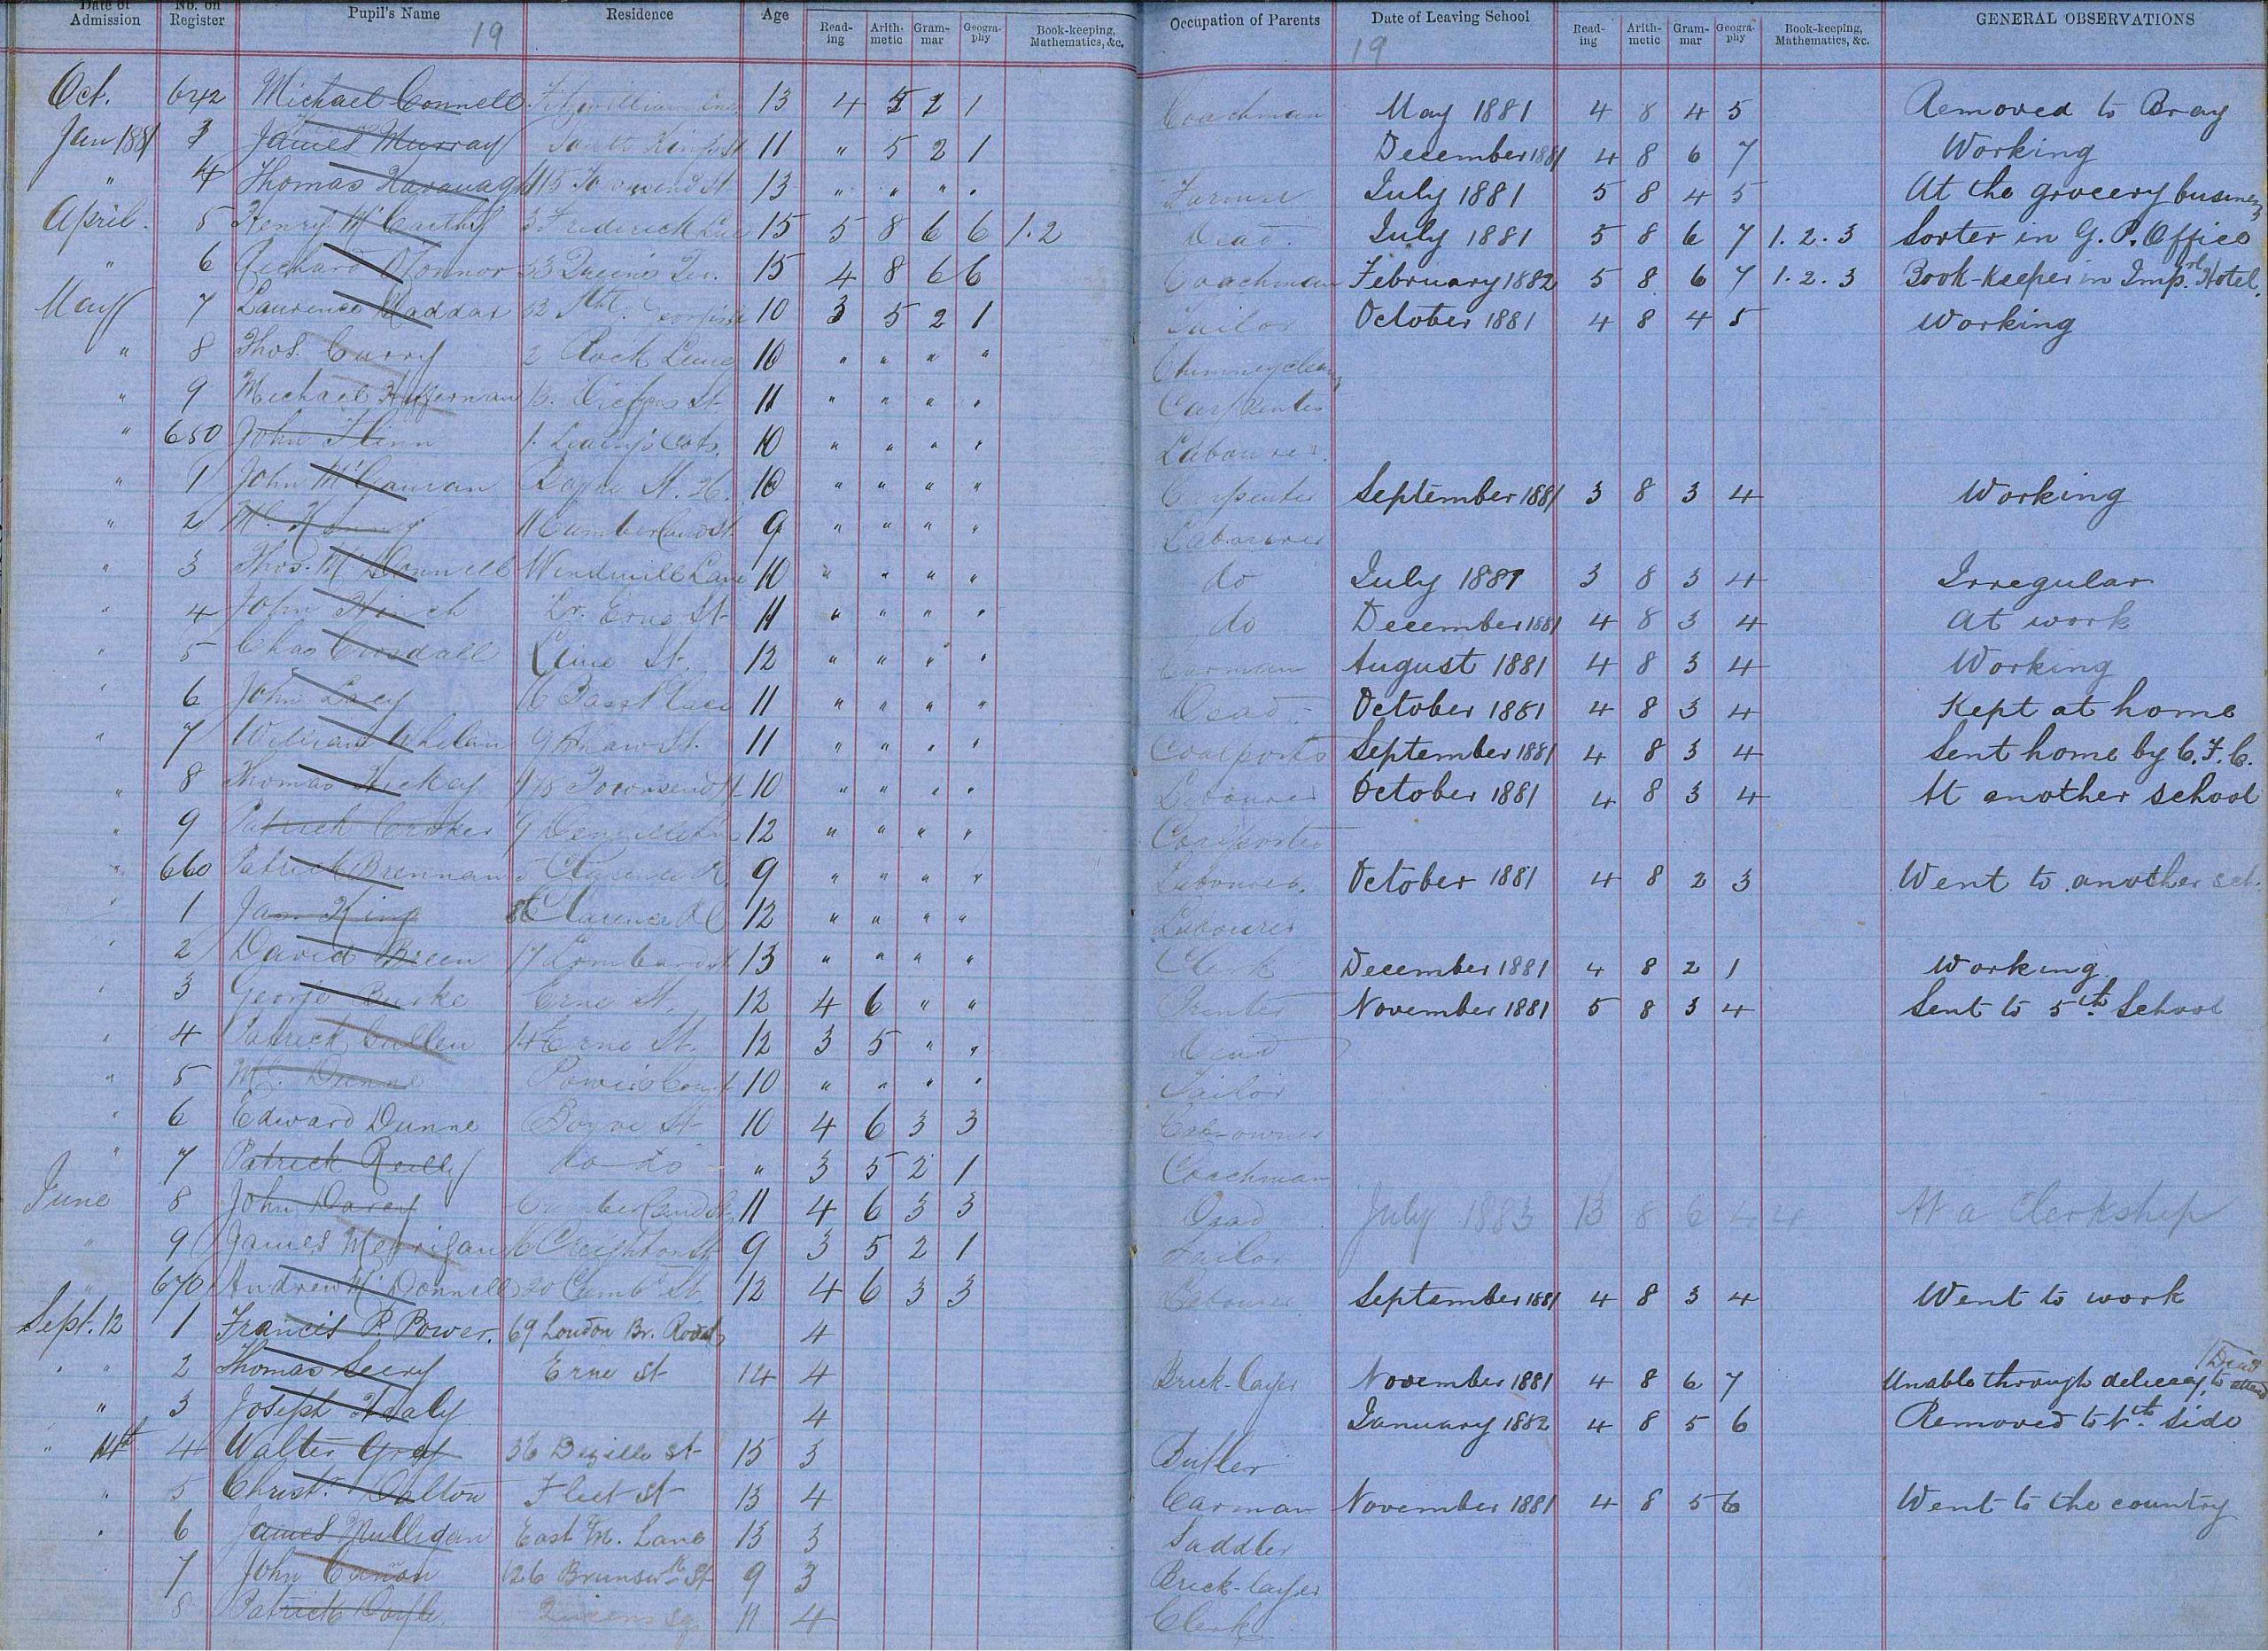 Date of Admission No. on Register Pupil's Name Residence Age Read-ing Arith-metic Gram-mar Geogra-phy Book-keeping, Mathematics, &c. Occupation of Parents Date of Leaving School Read-ing Arith-metic Gram-mar Geogra-phy Book-keeping, Mathematics, &c. GENERAL OBSERVATIONS
19 19
Oct. 642 Michael Connell Fitzwilliam 13 4 5 2 1 Coachman May 1881 4 8 4 5 Removed to Bray
Jan 1881 3 James Murray South King St 11 " 5 2 1 December 1881 4 8 6 7 Working
" 4 Thomas Kavanagh 115 Townsend St. 13 " " " " Farmer July 1881 5 8 4 5 At the grocery business
April. 5 Henry McCarthy 3 Frederick Lane 15 5 8 6 6 1.2 Dead. July 1881 5 8 6 7 1.2.3 Sorter in G.P. Office
" 6 Richard O'Connor 53 Queen's Ter. 15 4 8 6 6 Coachman February 1882 5 8 6 7 1.2.3 Book-keeper in Imprl. Hotel.
May 7 Laurence Maddar 52 10 3 5 2 1 Tailor October 1881 4 8 4 5 Working
" 8 Thos. Curry 2 Rock Lane 10 " " " " Chimney cleaner
" 9 Michael Heffernan 13. St. 11 " " " " Carpenter
" 650 John Flinn 1. Leahy's Cots. 10 " " " " Labourer.
" 1 John McGauran Boyne St. 26. 10 " " " " Carpenter September 1881 3 8 3 4 Working
" 2 Ml. Kenny 11 Cumberland St. 9 " " " " Labourer
" 3 Thos. McDonnell Windmill Lane 10 " " " " do July 1881 3 8 3 4 Irregular
" 4 John Hinch Lr. Erne St 11 " " " " do December 1881 4 8 3 4 At work
" 5 Chas Crosdall Lime St. 12 " " " " Carman August 1881 4 8 3 4 Working
" 6 John Lacy 16 Place 11 " " " " Dead October 1881 4 8 3 4 Kept at home
" 7 William Whelan 9 Shaw St. 11 " " " " Coalporter September 1881 4 8 3 4 Sent home by C.F.C.
" 8 Thomas Hickey Townsend St 10 " " " " Labourer October 1881 4 8 3 4 At another school
" 9 Patrick Corsker 9 Denzille Lane 12 " " " " Coalporter
" 660 Patrick Brennan 5 Clarence Pl. 9 " " " " Labourer. October 1881 4 8 2 3 Went to another sch.
" 1 Jas. King 86 Clarence Pl 12 " " " " Labourer
" 2 David Breen 17 Lombard St 13 " " " " Clerk December 1881 4 8 2 1 Working
" 3 George Burke Erne St. 12 4 6 " " Printer November 1881 5 8 3 4 Sent to 5th School
" 4 Patrick Cullen 14 Erne St. 12 3 5 " " Dead
" 5 Ml. Dunne Powis Court 10 " " " " Tailor
" 6 Edward Dunne Boyne St 10 4 6 3 3 Cab-owner
" 7 Patrick Reilly do do " 3 5 2 1 Coachman
June 8 John Darcy Cumberland St. 11 4 6 3 3 Dead July 1883 13 8 6 4 4 At a Clerkship
" 9 James Merrigan 6 Creighton St 9 3 5 2 1 Tailor
" 670 Andrew McDonnell 20 Cumb St. 12 4 6 3 3 Labourer September 1881 4 8 3 4 Went to work
Sept. 12 1 Francis P. Power. 69 London Br. Road 4
" " 2 Thomas Seery Erne St 14 4 Brick-layer November 1881 4 8 6 7 Unable through delicacy, to attend Dead
" 3 Joseph Healy 4 January 1882 4 8 5 6 Removed to Nth side
" 14th 4 Walter Gray 36 Dezille St 15 3 Butler
" 5 Christ. Dalton Fleet St 13 4 Carman November 1881 4 8 5 6 Went to the country
" 6 James Mulligan East M. Lane 13 3 Saddler
7 John Cannon 126 Brunswk St 9 3 Brick-layer
8 Patrick Doyle Queens Sq. 11 4 Clerk